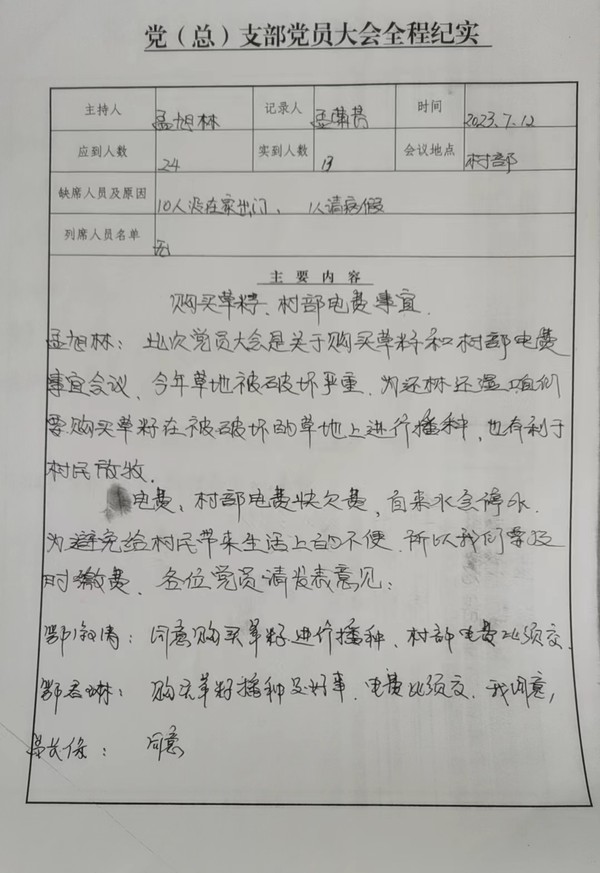 党（总）支部党员大会全程纪实
主持人 孟旭林 记录人 孟 时间 2023.7.12
应到人数 24 实到人数 13 会议地点 村部
缺席人员及原因 10人没在家出门、1人请病假
列席人员名单 无
主要内容
购买草籽、村部电费事宜.
孟旭林：此次党员大会是关于购买草籽和村部电费
事宜会议、今年草地被破坏严重.为还林还湿咱们
要购买草籽在被破坏的草地上进行播种，也有利于
村民放牧.
电费、村部电费快欠费，自来水会停水.
为避免给村民带来生活上的不便.所以我们要及
时缴费、各位党员请发表意见：
鄂淑清：同意购买草籽进行播种、村部电费必须交.
鄂 琳：购买草籽播种是好事、电费必须交.我同意,
长保：同意